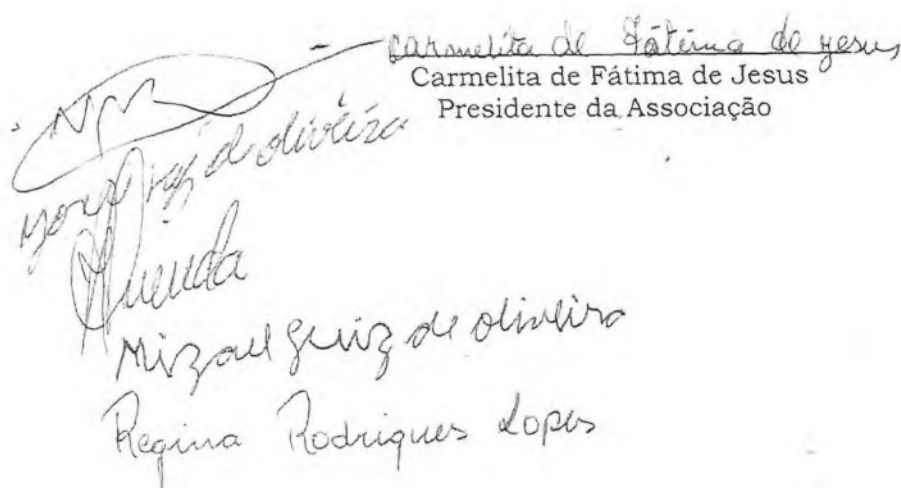 carmelita de Fátima de jesus
Carmelita de Fátima de Jesus
Presidente da Associação
de oliveira
Mizael Luiz de oliveira
Regina Rodrigues Lopes